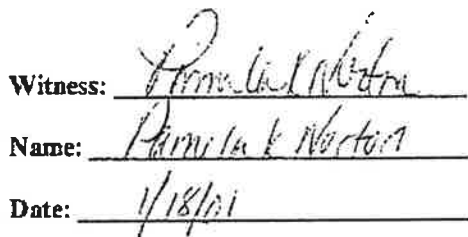 Witness: Pamela K Norton
Name: Pamela K Norton
Date: 1/18/01